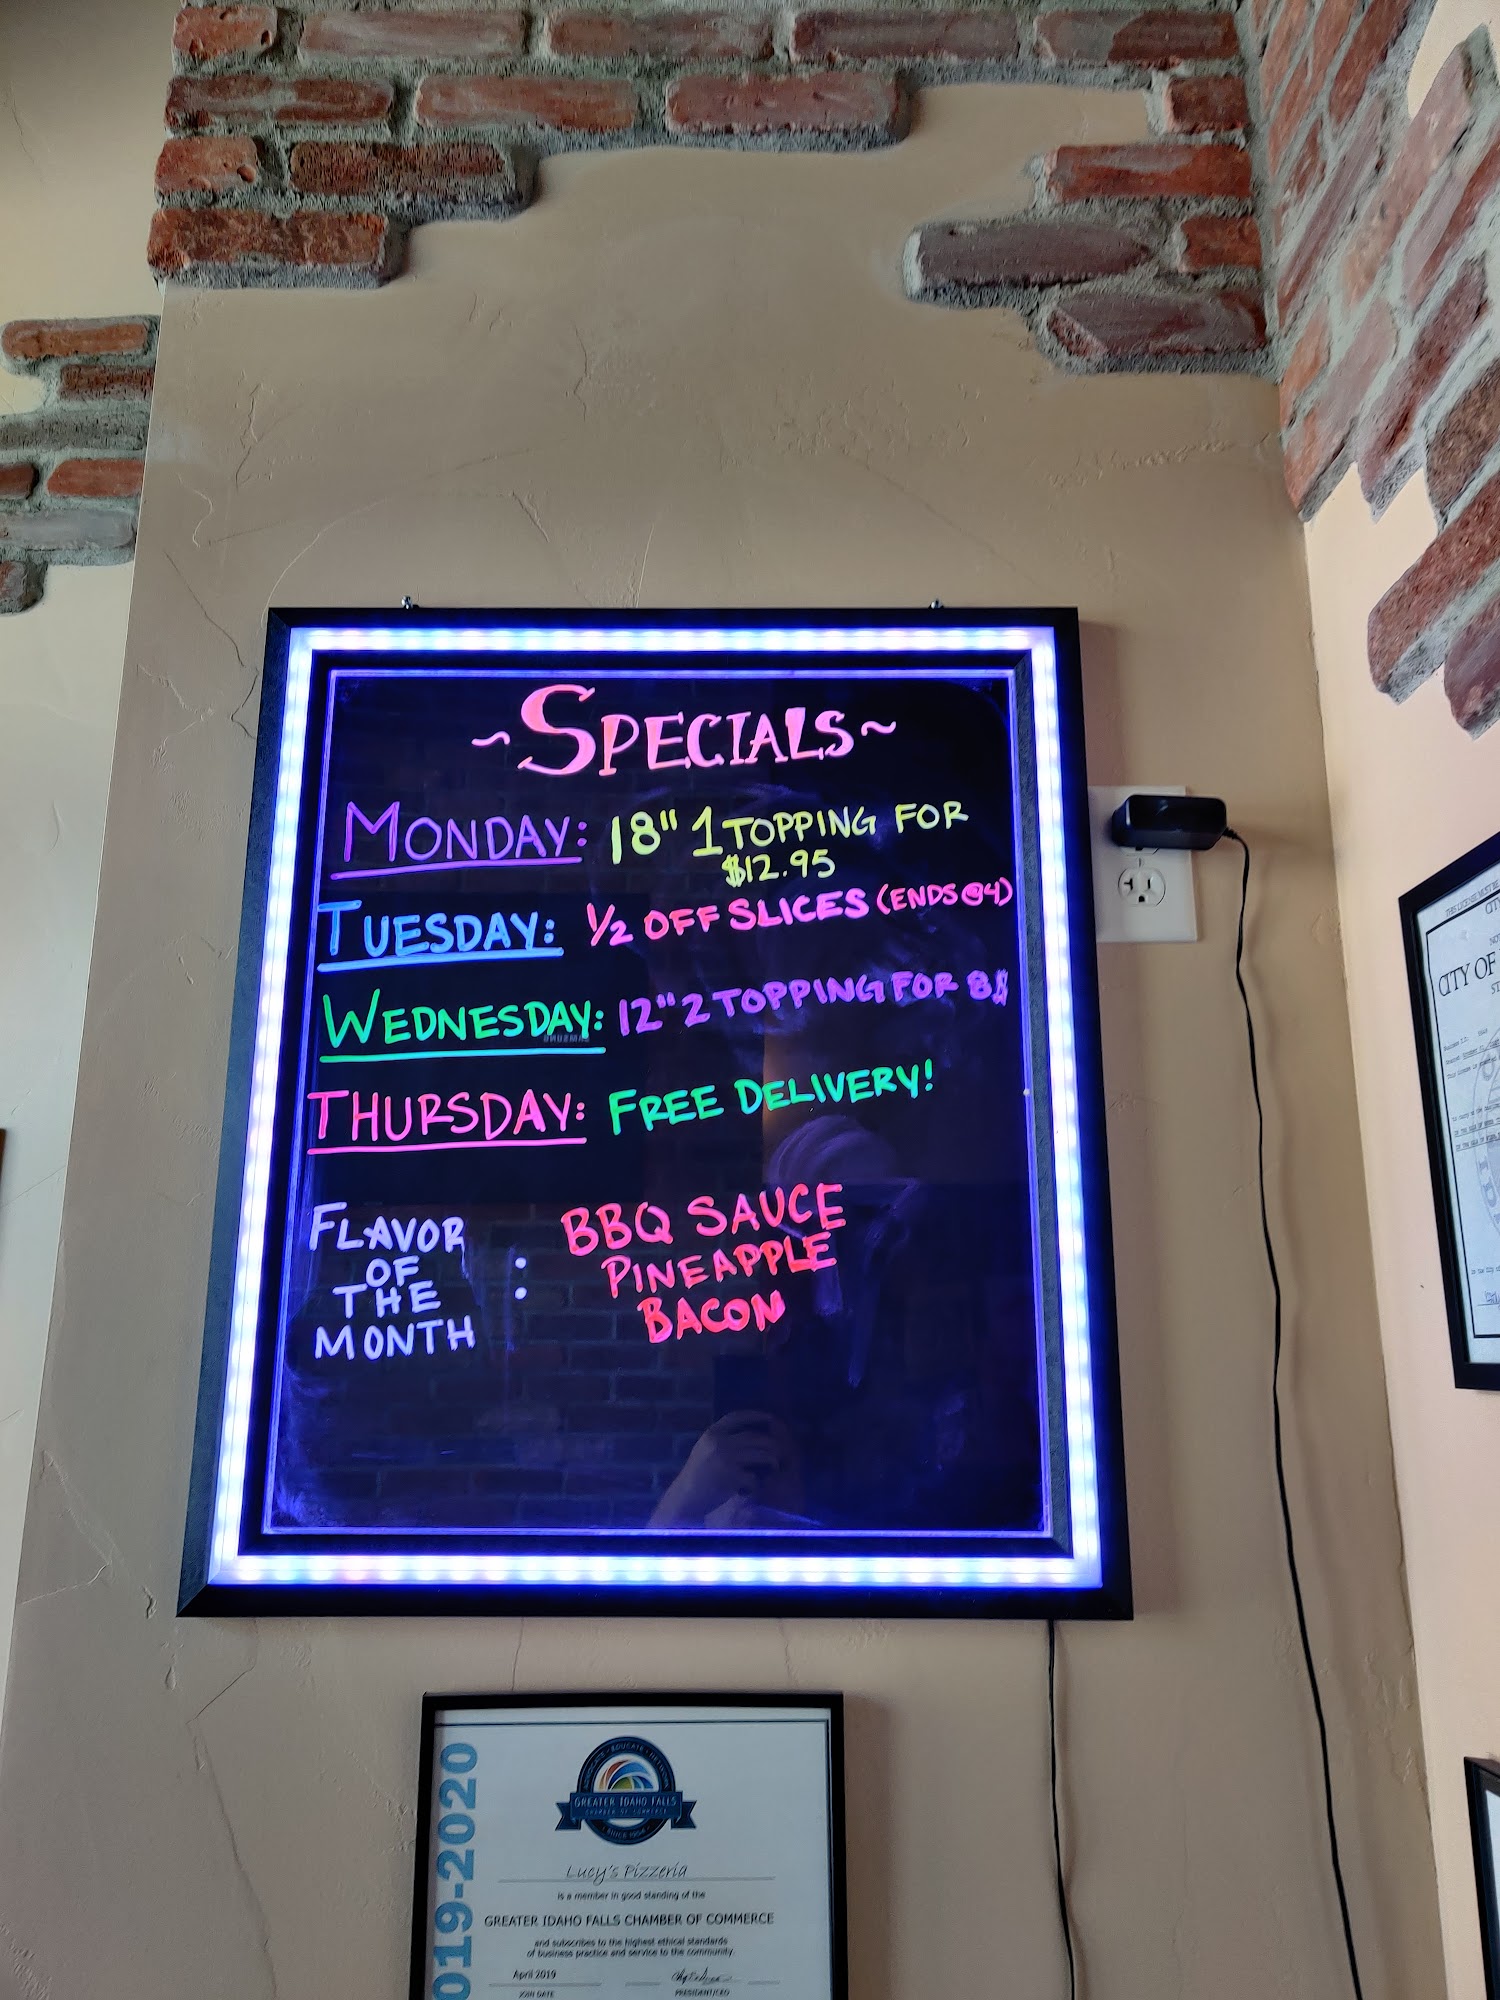 ~SPECIALS~
MONDAY: 18" 1 TOPPING FOR
$12.95
TUESDAY: 1/2 OFF SLICES (ENDS @4)
WEDNESDAY: 12" 2 TOPPING FOR 8$
THURSDAY: FREE DELIVERY!
FLAVOR
OF
THE
MONTH
:
BBQ SAUCE
PINEAPPLE
BACON
CITY OF
019-2020
EDUCATE
GREATER IDAHO FALLS
CHAMBER OF COMMERCE
Lucy's Pizzeria
is a member in good standing of the
GREATER IDAHO FALLS CHAMBER OF COMMERCE
and subscribes to the highest ethical standards
of business practice and service to the community.
April 2019
JOIN DATE
PRESIDENT/CEO